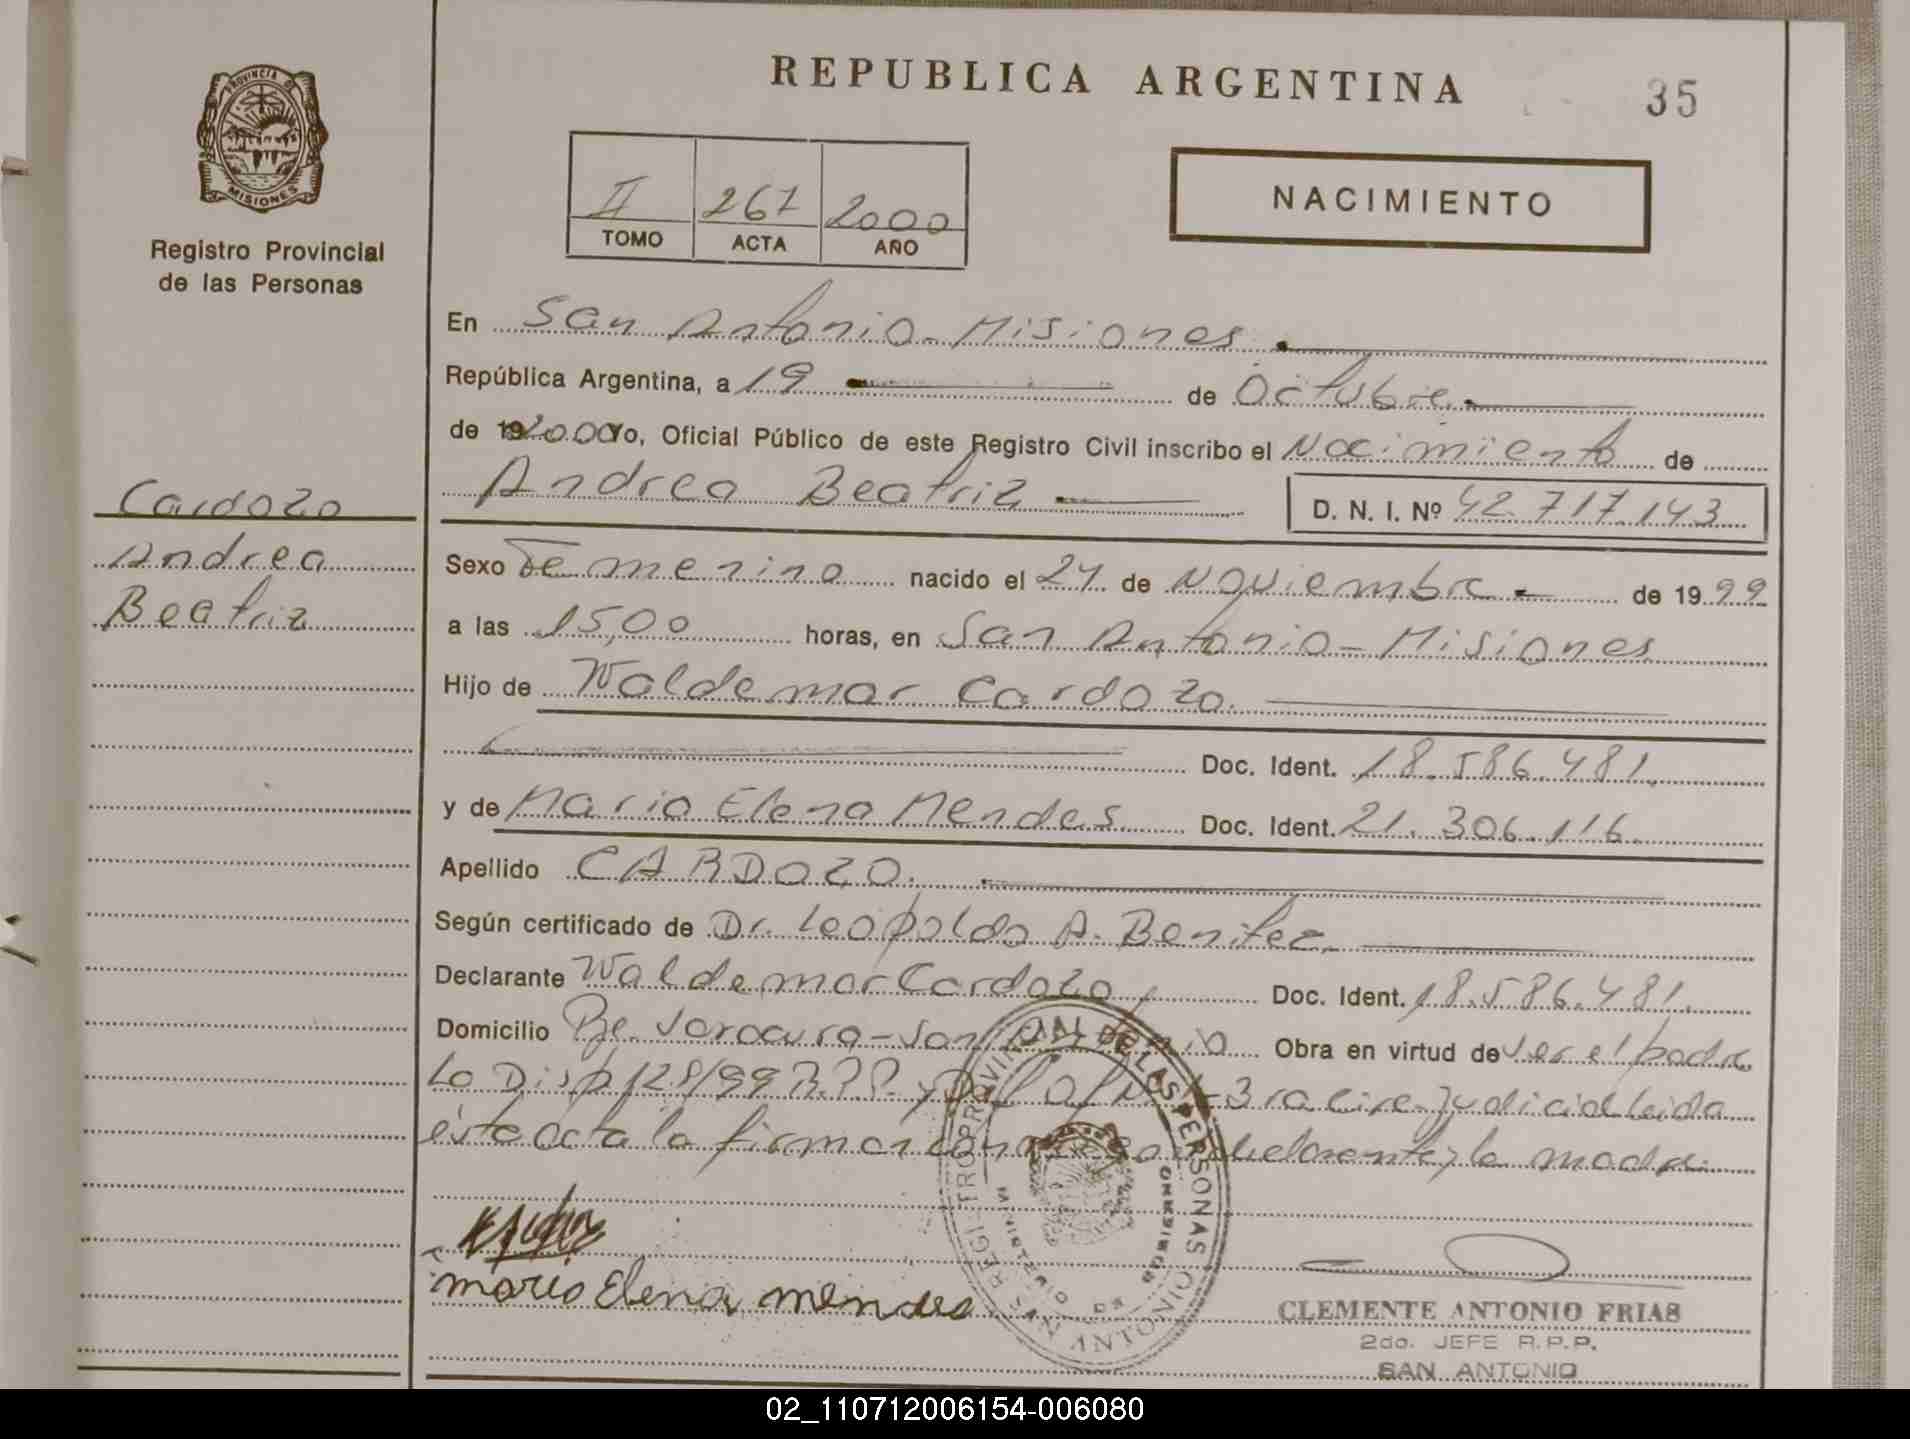 REPUBLICA ARGENTINA
35
PROVINCIA DE
MISIONES
Registro Provincial
de las Personas
II 267 2000
TOMO ACTA AÑO
NACIMIENTO
En San Antonio - Misiones
República Argentina, a 19 de Octubre
de 192000 Yo, Oficial Público de este Registro Civil inscribo el Nacimiento de
Andrea Beatriz D. N. I. Nº 42.717.143
Cardozo
Andrea
Beatriz
Sexo Femenino nacido el 24 de Noviembre de 1999
a las 15,00 horas, en San Antonio - Misiones
Hijo de Waldemar Cardozo.
Doc. Ident. 18.586.481.
y de Maria Elena Mendes Doc. Ident. 21.306.116.
Apellido CARDOZO.
Según certificado de Dr. Leopoldo A. Benitez.
Declarante Waldemar Cardozo Doc. Ident. 18.586.481.
Domicilio San Obra en virtud de ser el padre
Disp 128/99 R.P.P. judicial Leida
ésta acta la firman declarante y la madre
Maria Elena Mendes
REGISTRO PROVINCIAL DE LAS PERSONAS
MINISTERIO DE GOBIERNO
SAN ANTONIO
CLEMENTE ANTONIO FRIAS
2do. JEFE R.P.P.
SAN ANTONIO
02_110712006154-006080